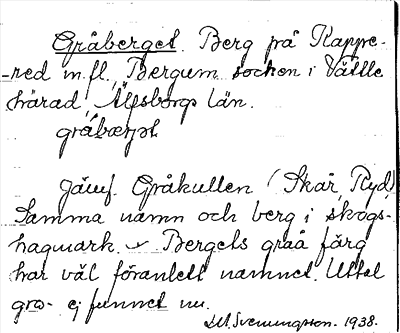 Gråberget. Berg på Rappe-
-red m.fl., Bergum socken i Vättle
härad, Älfsborgs län.
gråbærjət
Jämf. Gråkullen (Skår, Ryd)
Samma namn och berg i skogs-
hagmark. Bergets gråa färg
har väl föranlett namnet. Uttal
gro- ej funnet nu.
Svenungsson. 1938.